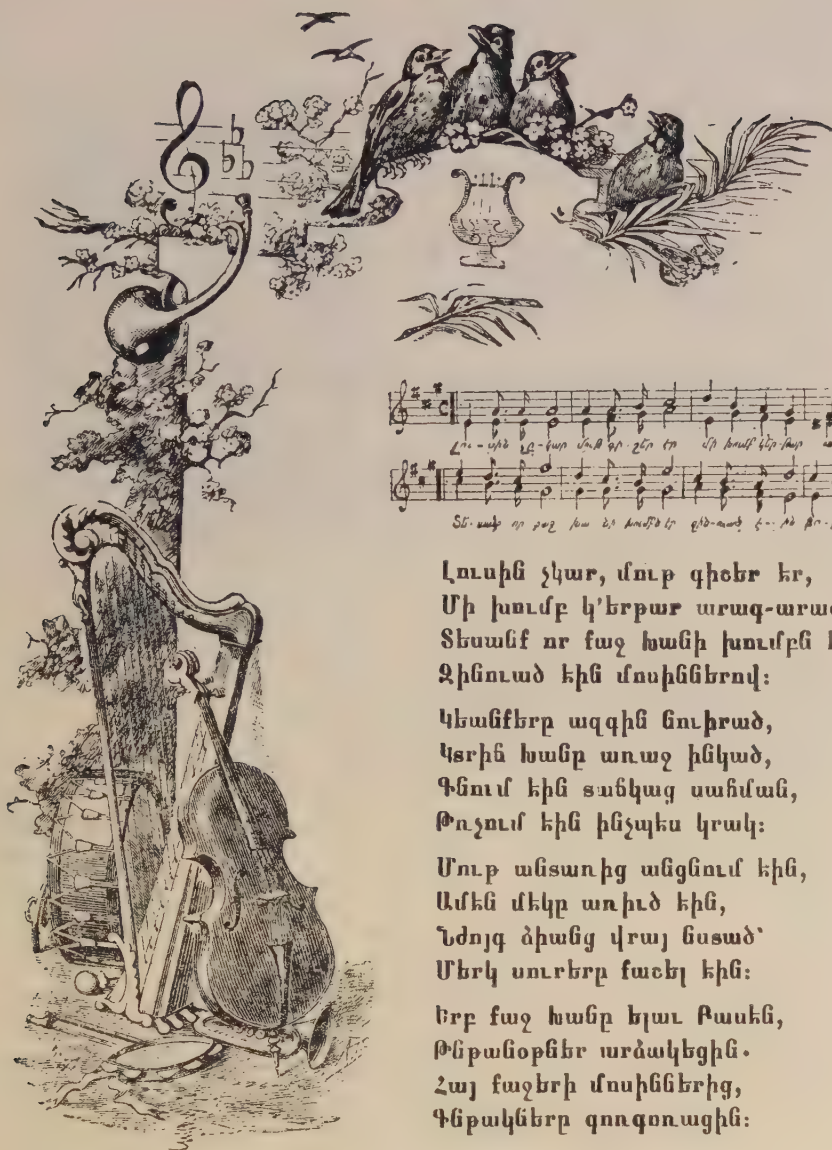 Լուսին չկար, մութ գիշեր էր,
Մի խումբ կ'երթար արագ-արագ
Տեսանք որ քաջ Խանի խումբն
Զինուած էին մոսիններով։
Կեանքերը ազգին նուիրած,
Կտրիճ Խանը առաջ ինկած,
Գնում էին տանկաց սահման,
Թռչում էին ինչպէս կրակ։
Մութ անտառից անցնում էին,
Ամէն մէկը առիւծ էին,
Նժոյգ ձիանց վրայ նստած՝
Մերկ սուրերը քաշել էին։
Երբ քաջ Խանը ելաւ Բասէն,
Թնթանօթներ արձակեցին.
Հայ քաջերի մոսիններից,
Գնթակները գոռգոռացին։